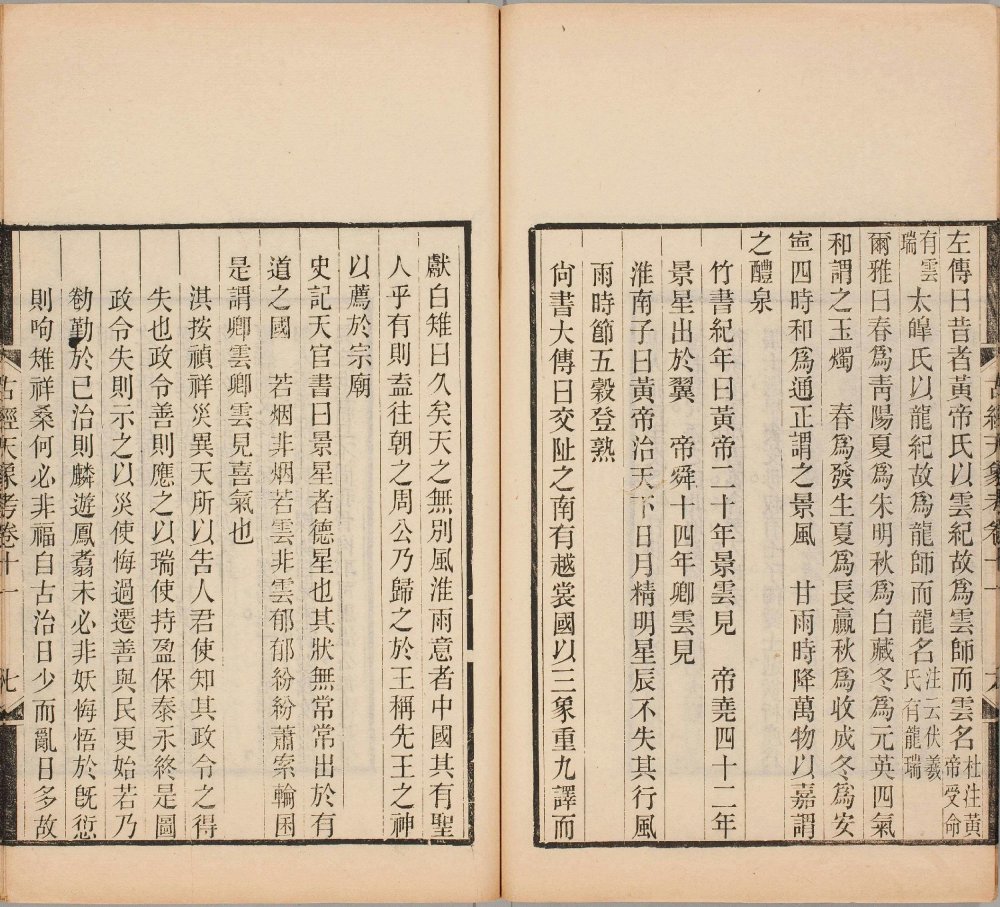 左傳曰昔者黃帝氏以雲紀故爲雲師而雲名杜注黃帝受命
有雲瑞太皞氏以龍紀故爲龍師而龍名注云伏羲氏有龍瑞
爾雅曰春爲靑陽夏爲朱明秋爲白藏冬爲元英四氣
和謂之玉燭　春爲發生夏爲長贏秋爲收成冬爲安
寍四時和爲通正謂之景風　甘雨時降萬物以嘉謂
之醴泉
竹書紀年曰黃帝二十年景雲見　帝堯四十二年
景星出於翼　帝舜十四年卿雲見
淮南子曰黃帝治天下日月精明星辰不失其行風
雨時節五穀登熟
尙書大傳曰交阯之南有越裳國以三象重九譯而
獻白雉曰久矣天之無別風淮雨意者中國其有聖
人乎有則盍往朝之周公乃歸之於王稱先王之神
以薦於宗廟
史記天官書曰景星者德星也其狀無常常出於有
道之國　若烟非烟若雲非雲郁郁紛紛蕭索輪囷
是謂卿雲卿雲見喜氣也
淇按禎祥災異天所以吿人君使知其政令之得
失也政令善則應之以瑞使持盈保泰永終是圖
政令失則示之以災使悔過遷善與民更始若乃
勅勤於已治則麟遊鳳翥未必非妖悔悟於旣愆
則呴雉祥桑何必非福自古治日少而亂日多故
古經天象考卷十一　七